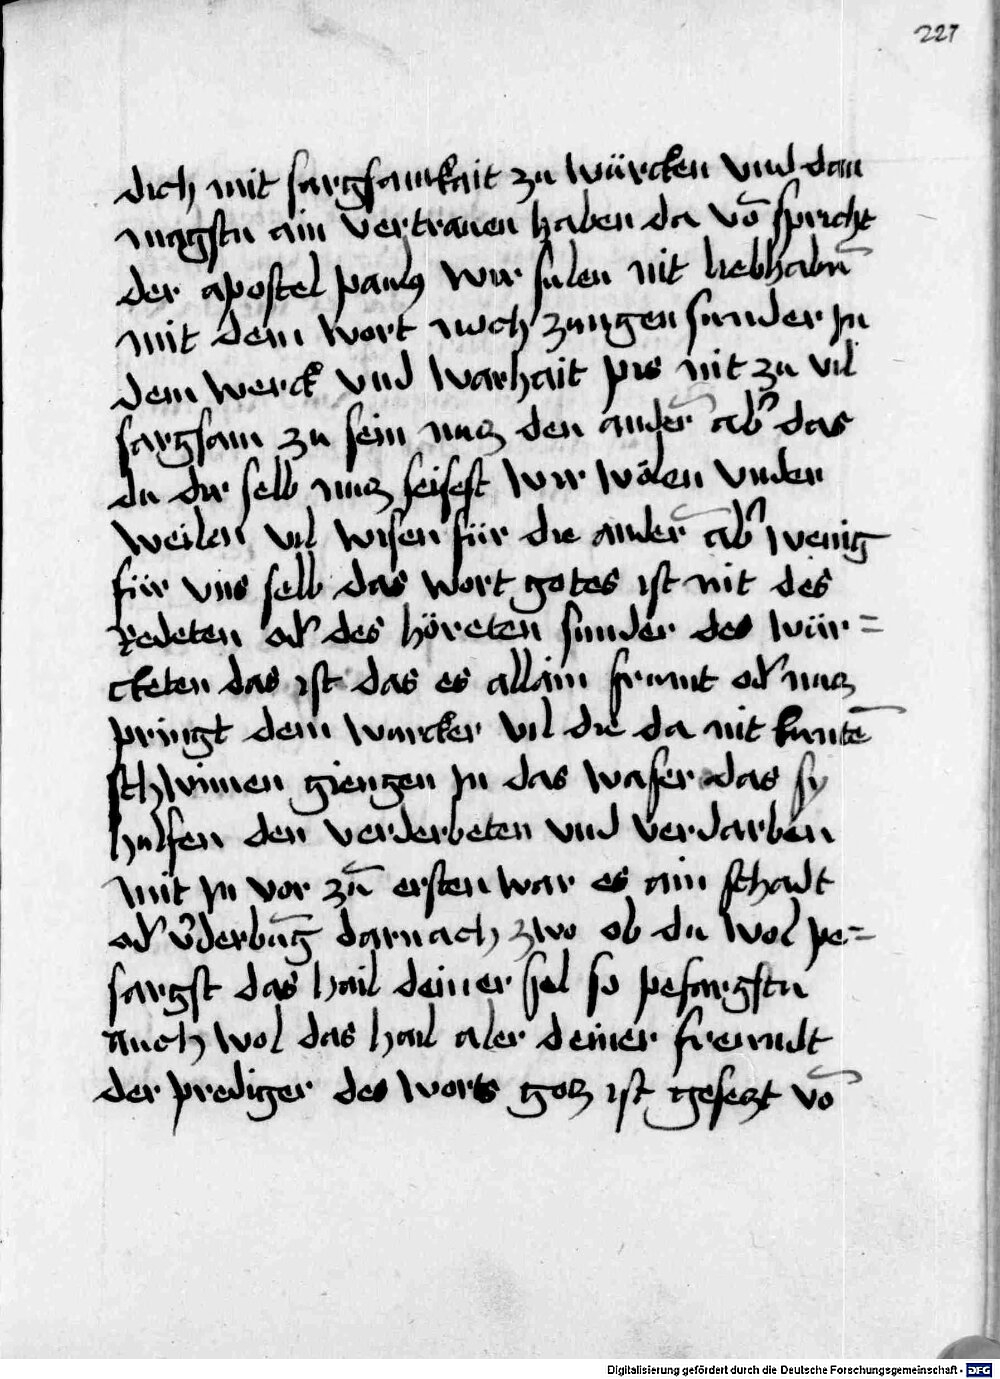 227
dich mit sargsamkait zu würcken vnd dan
magstu ain vertrauen haben da vō spricht
der apostel paulꝰ wir sulen nit liebhabn̄
mit dem wort noch zungen sunder jn
dem werck vnd warhait pis nit zu vil
sargsam zu sein nucz den ander̄ ab̓ das
du dir selb nucz seisest wir wölen vnder
weilen vil wisen für die ander̄ ab̓ wenig
für vns selb das wort gotes ist nit des
Redeten od̓ des höreten sunder des wür=
cketen das ist das es allain frumt od̓ nucz
pringt dem wurcker vil die da nit kuntē
schwimen giengen jn das waser das sy
hulfen den verderbeten vnd verdarben
mit jn vor zū ersten war es ain schadt
od̓ v̓derbūg darnach zwo ob du wol pe=
sargst das hail deiner sel so pesargstu
auch wol das hail aler deiner freundt
der prediger des worts gocz ist geseczt vō
Digitalisierung gefördert durch die Deutsche Forschungsgemeinschaft - DFG